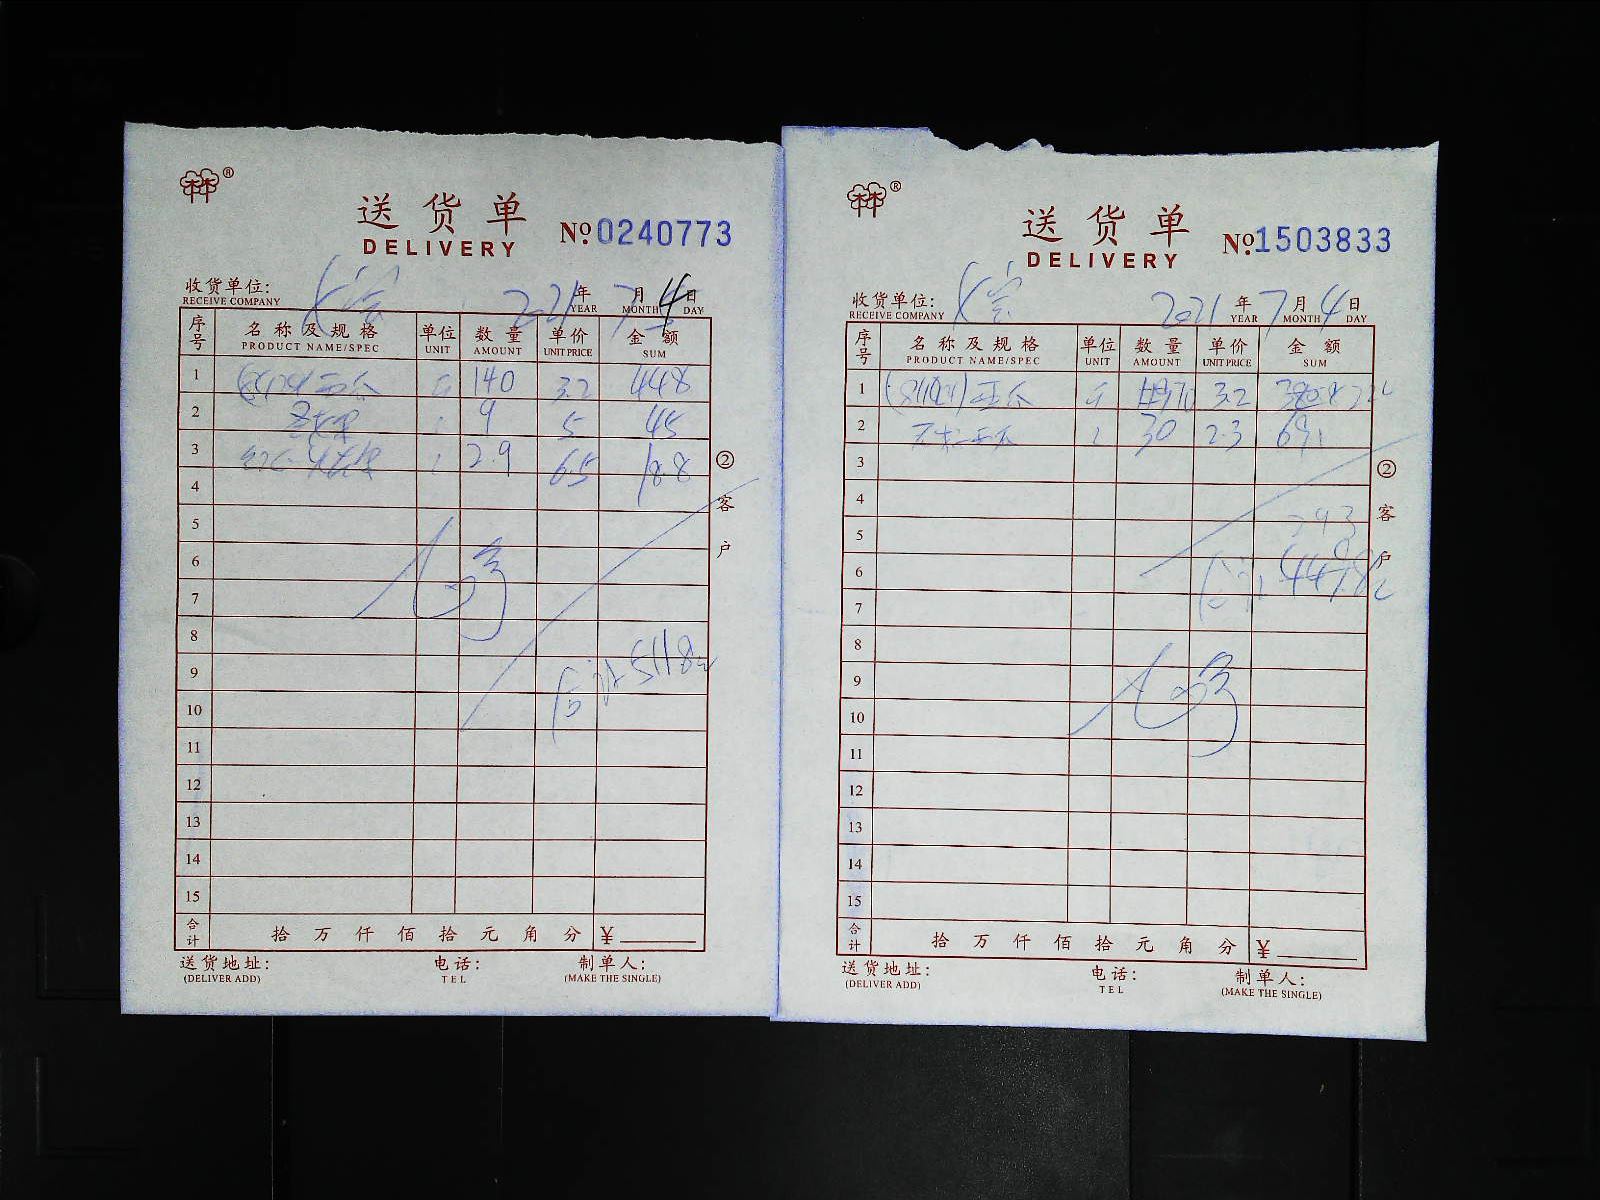 林®
送货单
DELIVERY
No.0240773
收货单位:
RECEIVE COMPANY
2021年 7月 4日
YEAR MONTH DAY
序号 名称及规格 单位 数量 单价 金额
PRODUCT NAME/SPEC UNIT AMOUNT UNIT PRICE SUM
1 140 3.2 448
2 9 5 45
3 2.9 6.5 18.8
4
5
6
7
8
9 合计 511.8
10
11
12
13
14
15
合计 拾 万 仟 佰 拾 元 角 分 ¥
送货地址: 电话: 制单人:
(DELIVER ADD) TEL (MAKE THE SINGLE)
②客户
林®
送货单
DELIVERY
No.1503833
收货单位:
RECEIVE COMPANY
2021年 7月 4日
YEAR MONTH DAY
序号 名称及规格 单位 数量 单价 金额
PRODUCT NAME/SPEC UNIT AMOUNT UNIT PRICE SUM
1 3.2
2 30 2.3 69
3
4
5
6 合计
7
8
9
10
11
12
13
14
15
合计 拾 万 仟 佰 拾 元 角 分 ¥
送货地址: 电话: 制单人:
(DELIVER ADD) TEL (MAKE THE SINGLE)
②客户